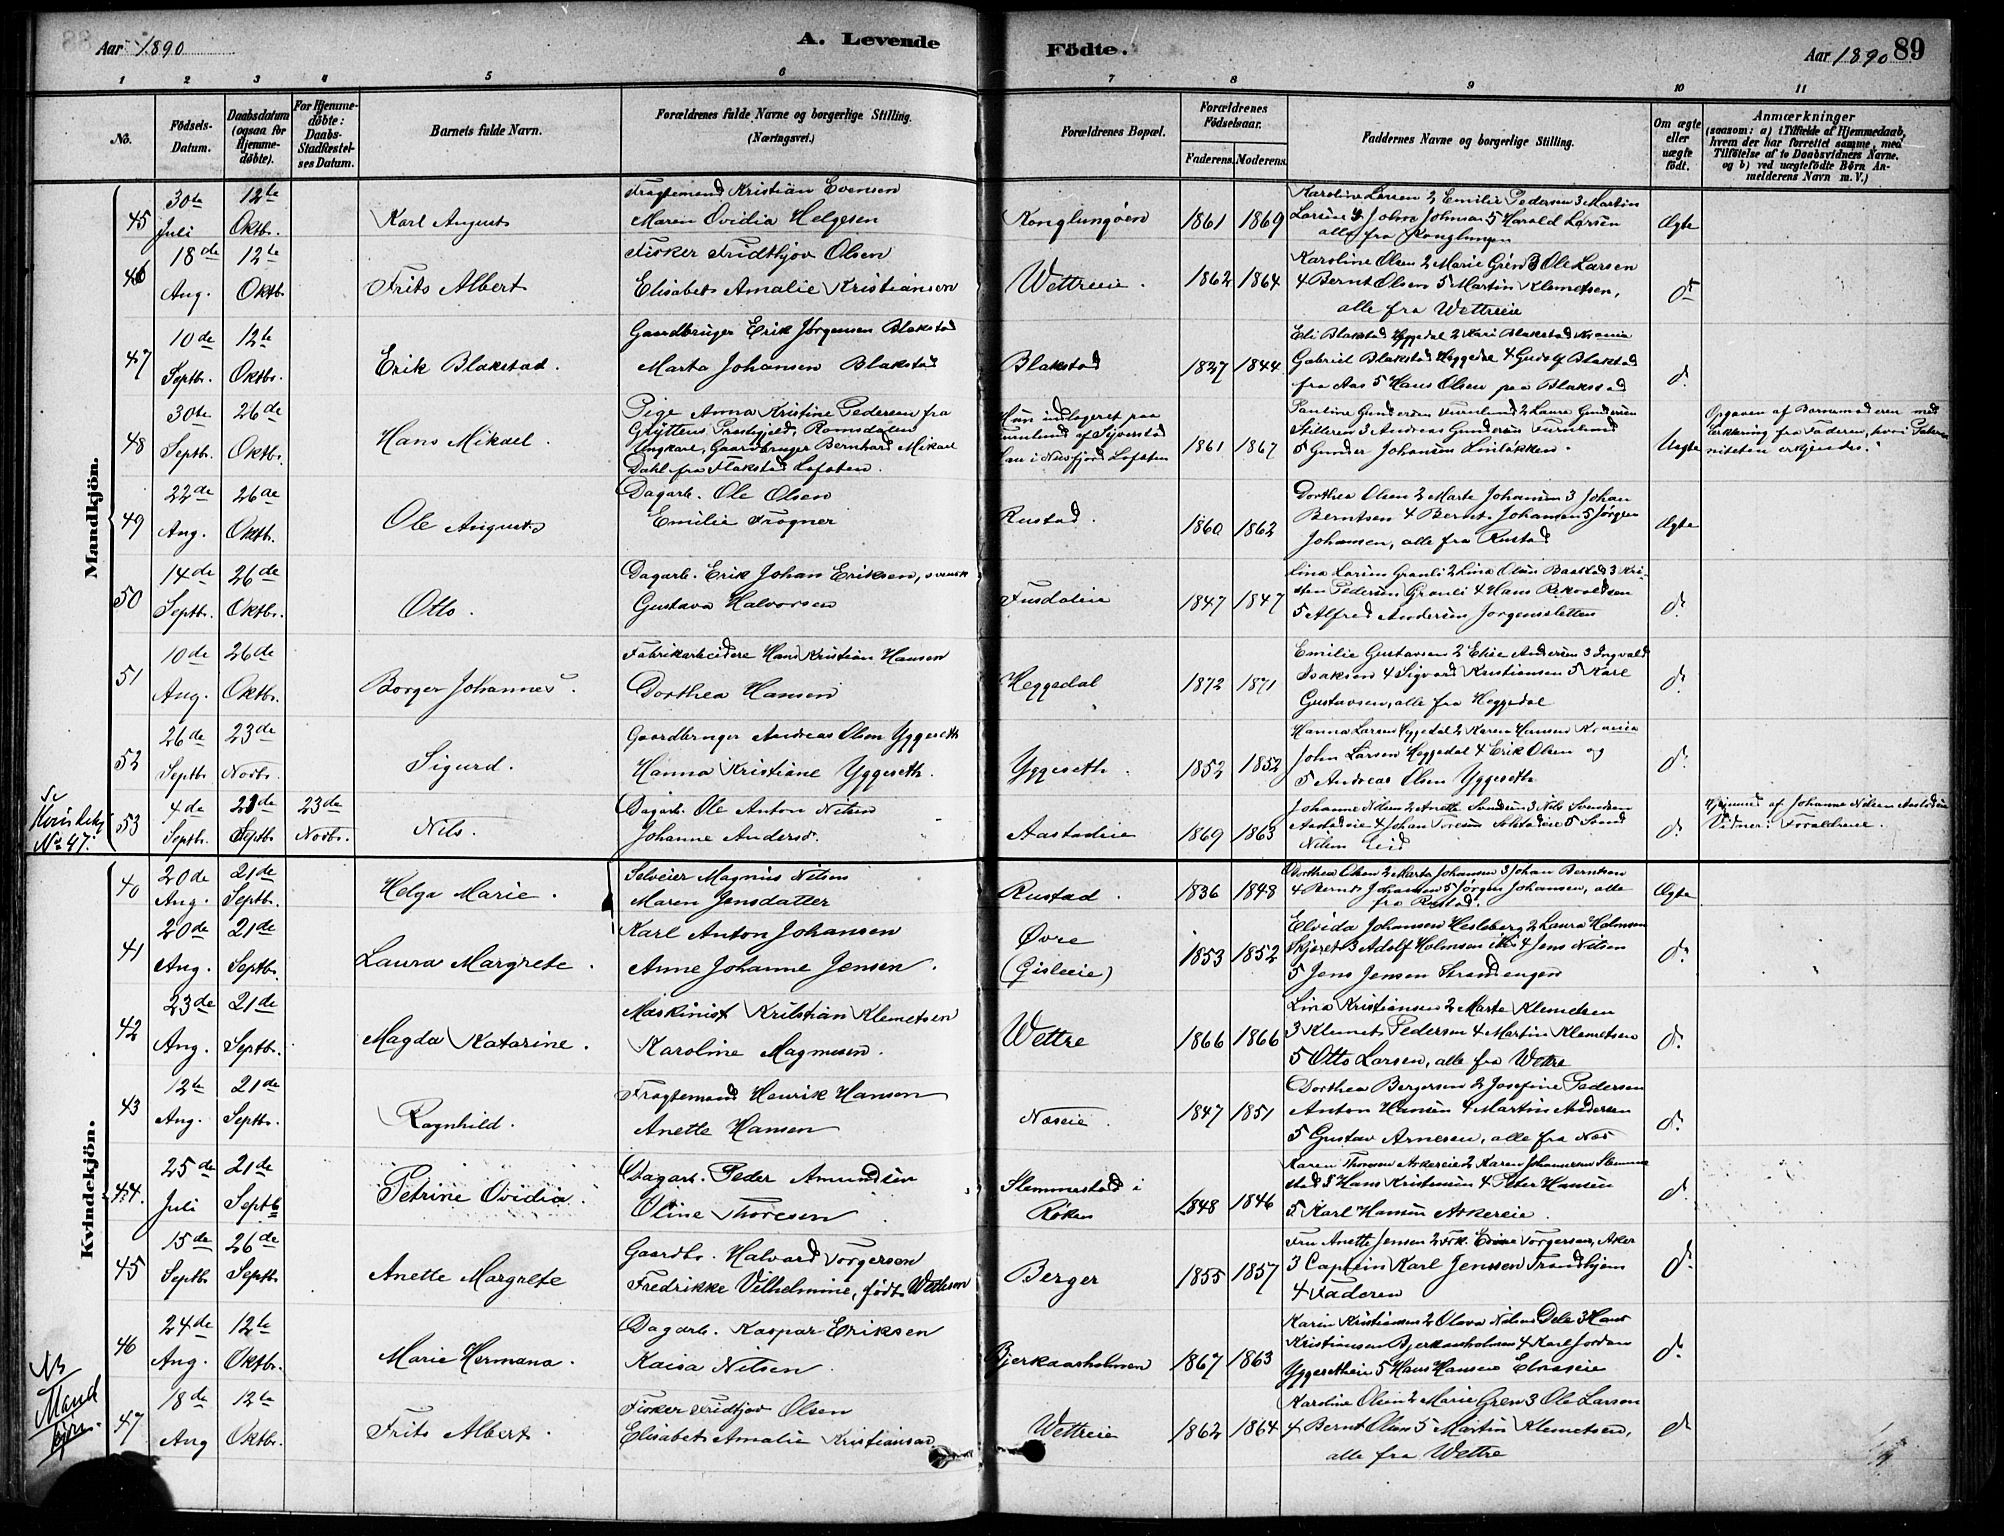 Aar 1890
A. Levende Födte.
Aar 1890 89
1 2 3 4 5 6 7 8 9 10 11
No.
Födsels-Datum.
Daabsdatum (ogsaa for Hjemme-döbte).
For Hjemme-döbte: Daabs-Stadfæstel-ses Datum.
Barnets fulde Navn.
Forældrenes fulde Navne og borgerlige Stilling. (Næringsvei.)
Forældrenes Bopæl.
Forældrenes Födselsaar.
Faderens. Moderens.
Faddernes Navne og borgerlige Stilling.
Om ægte eller uægte födt.
Anmærkninger
(saasom: a) i Tilfælde af Hjemmedaab, hvem der har forrettet samme, med Tilföielse af to Daabsvidners Navne, og b) ved uægtefödte Börn An-melderens Navn m. V.)
Mandkjön.
45 30te Juli 12te Oktbr. Karl August
Fragtemand Kristian Evensen
Maren Ovidia Helgesen
Konglungöen 1861 1869
Karoline Larsen 2 Emilie Pedersen 3 Martin
Larsen 4 John Johnsen 5 Harald Larsen
alle fra Konglungen
Ægte
46 18de Aug. 12te Oktb. Frits Albert
Fisker Fridthjov Olsen
Elisabet Amalie Kristiansen
Wettreeie. 1862 1864
Karoline Olsen 2 Marie Gren 3 Ole Larsen
4 Bernt Olsen 5 Martin Klemetsen,
alle fra Wettreeie
do
47 10de Septbr. 12te Oktbr. Erik Blakstad.
Gaardbruger Erik Jørgensen Blakstad
Marta Johansen Blakstad
Blakstad 1837 1844
Eli Blakstad Heggedal 2 Kari Blakstad Krania
Gabriel Blakstad Heggedal 4 Gudolf Blakstad
fra Aas 5 Hans Olsen paa Blakstad
do
48 30te Septbr. 26de Oktbr. Hans Mikael.
Pige Anna Kristine Pedersen fra
Grÿttens Præstegjeld, Romsdalen
Ungkarl, Gaardbruger Bernhard Mikael
Dahl fra Flakstad Lofoten.
Hun indlogeret paa
Furulund af Syverstad
Han i Nusfjord Lofoten
1861 1867
Pauline Gundersen Furulund 2 Laura Gundersen
3 Andreas Gundersen Furulund
5 Gunder Johansen Linløkken.
Uægte
Opgaven af Barnemoderen med
Erklæring fra Faderen, hvori Pater-
niteten erkjendes.
49 22de Aug. 26de Oktbr. Ole August
Dagarb. Ole Olsen
Emilie Frogner
Rustad. 1860 1862
Dorthea Olsen 2 Marte Johansen 3 Johan
Berntsen 4 Bernt Johansen 5 Jørgen
Johansen, alle fra Rustad
Ægte
50 14de Septbr. 26de Oktbr. Otto.
Dagarb. Erik Johan Eriksen, svensk
Gustava Halvorsen
Fusdaleie 1847 1847
Lina Larsen Granli 2 Lina Olsen Baastad 3 Kri-
sten Pedersen Granli 4 Hans
5 Alfred Andersen Jørgensletten
do
51 10de Aug. 26de Oktbr. Borger Johannes.
Fabrikarbeidere Hans Kristian Hansen
Dorthea Hansen
Heggedal 1872 1871
Emilie Gustavsen 2 Elise Andersen 3 Ingvald
Isaksen 4 Sigvard Kristiansen 5 Karl
Gustavsen, alle fra Heggedal
do
52 26de Septbr 23de Novbr. Sigurd.
Gaardbruger Andreas Olsen Yggeseth
Hanna Kristiane Yggeseth.
Yggeseth. 1852 1852
Hanna Larsen Heggedal 2 Karen Hansen Krania
John Larsen Heggedal 4 Erik Olsen og
5 Andreas Olsen Yggeseth
do
Se Kvindekj. No 47.
53 4de Septbr. 21de Septbr. 23de Novbr. Nils.
Dagarb. Ole Anton Nilsen
Johanne Andersd.
Aastadeie 1869 1863
Johanne Nilsen 2 Anette Svendsen 3 Nils Svendsen
Aastadeie 4 Johan Toresen Solstadeie 5 Svend
Nilsen Eid
do
Hjemmed. af Johanne Nilsen Aastadeie
Vidner: Forældrene.
Kvindekjön.
40 20de Aug. 21de Septbr. Helga Marie.
Selveier Magnus Nilsen
Maren Jensdatter
Rustad. 1836 1848
Dorthea Olsen 2 Marte Johansen 3 Johan Berntsen
4 Bernt Johansen 5 Jørgen Johansen, alle
fra Rustad.
Ægte
41 20de Aug. 21de Septbr. Laura Margrete.
Karl Anton Johansen
Anne Johanne Jensen.
Øvre (Gisleeie) 1853 1852
Elvida Johansen Hesleberg 2 Laura Holmsen
Skjæret 3 Adolf Holmsen 4 Jens Nilsen
5 Jens Jensen Strandengen
do
42 23de Aug. 21de Septbr. Magda Katarine.
Maskinist Kristian Klemetsen
Karoline Magnusen.
Wettre 1866 1866
Lina Kristiansen 2 Marte Klemetsen
3 Klemet Pedersen 4 Martin Klemetsen
5 Otto Larsen, alle fra Wettre
do
43 12te Aug. 21de Septbr. Ragnhild.
Fragtemand Henrik Hansen
Anette Hansen
Næseie. 1847 1851
Dorthea Bergersen 2 Josefine Pedersen
Anton Hansen 4 Martin Andersen
5 Gustav Arnesen, alle fra Næs
do
44. 25de Juli 21de Septb Petrine Ovidia.
Dagarb. Peder Amundsen
Oline Thoresen
Slemmestad i Røken 1848 1846
Karen Thoresen Askereie 2 Karen Johannesen Slemme
stad 3 Hans Kristensen 4 Peter Hansen
5 Karl Hansen Askereie.
do
45 15de Septbr 26de Septbr Anette Margrete
Gaardbr. Halvard Torgersen
Fredrikke Vilhelmine, født Wettresen
Berger 1855 1857
Fru Anette Jensen 2 Frk. Torgersen, Aker
3 Captein Karl Jenssen Trondhjem
4 Faderen
do
46 24de Aug. 12te Oktbr. Marie Hermana.
Dagarb. Kaspar Eriksen
Kaisa Nilsen
Bjerkaasholmen 1867 1863
Karin Kristiansen 2 Olava Nilsen Dele 3 Hans
Kristiansen Bjerkaasholmen 4 Karl Jordan
Yggesetheie 5 Hans Hansen
do
NB Mandkjøn.
47 18de Aug 12te Oktbr. Frits Albert.
Fisker Fridtjov Olsen
Elisabet Amalie Kristiansen
Wettreeie 1862 1864
Karoline Olsen 2 Marie Gren 3 Ole Larsen
4 Bernt Olsen 5 Martin Klemetsen,
alle fra Wettre
do